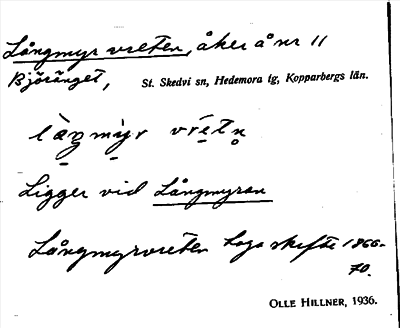 Långmyrvreten, åker å nr 11
Björänget, St. Skedvi sn, Hedemora tg, Kopparbergs län.
Ligger vid Långmyran
Långmyrvreten laga skifte 1866-
70.
OLLE HILLNER, 1936.